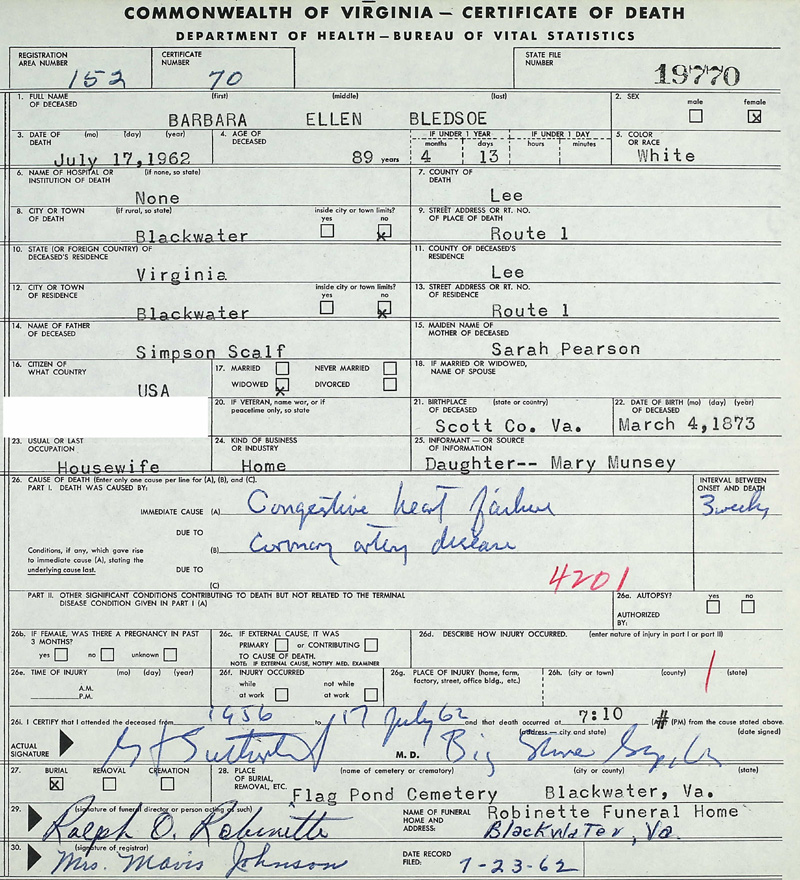 COMMONWEALTH OF VIRGINIA — CERTIFICATE OF DEATH
DEPARTMENT OF HEALTH — BUREAU OF VITAL STATISTICS
REGISTRATION AREA NUMBER 152 CERTIFICATE NUMBER 70 STATE FILE NUMBER 19770
1. FULL NAME OF DECEASED (first) (middle) (last) 2. SEX male female
BARBARA ELLEN BLEDSOE
3. DATE OF DEATH (mo) (day) (year) 4. AGE OF DECEASED IF UNDER 1 YEAR months days IF UNDER 1 DAY hours minutes 5. COLOR OR RACE
July 17,1962 89 years 4 13 White
6. NAME OF HOSPITAL OR INSTITUTION OF DEATH (if none, so state) 7. COUNTY OF DEATH
None Lee
8. CITY OR TOWN OF DEATH (if rural, so state) inside city or town limits? yes no 9. STREET ADDRESS OR RT. NO. OF PLACE OF DEATH
Blackwater Route 1
10. STATE (OR FOREIGN COUNTRY) OF DECEASED'S RESIDENCE 11. COUNTY OF DECEASED'S RESIDENCE
Virginia Lee
12. CITY OR TOWN OF RESIDENCE inside city or town limits? yes no 13. STREET ADDRESS OR RT. NO. OF RESIDENCE
Blackwater Route 1
14. NAME OF FATHER OF DECEASED 15. MAIDEN NAME OF MOTHER OF DECEASED
Simpson Scalf Sarah Pearson
16. CITIZEN OF WHAT COUNTRY 17. MARRIED NEVER MARRIED WIDOWED DIVORCED 18. IF MARRIED OR WIDOWED, NAME OF SPOUSE
USA
20. IF VETERAN, name war, or if peacetime only, so state 21. BIRTHPLACE OF DECEASED (state or country) 22. DATE OF BIRTH (mo) (day) (year) OF DECEASED
Scott Co. Va. March 4,1873
23. USUAL OR LAST OCCUPATION 24. KIND OF BUSINESS OR INDUSTRY 25. INFORMANT — OR SOURCE OF INFORMATION
Housewife Home Daughter-- Mary Munsey
26. CAUSE OF DEATH (Enter only one cause per line for (A), (B), and (C). INTERVAL BETWEEN ONSET AND DEATH
PART I. DEATH WAS CAUSED BY:
IMMEDIATE CAUSE (A) Congestive heart failure 3 weeks
DUE TO
(B) Coronary artery disease
Conditions, if any, which gave rise to immediate cause (A), stating the underlying cause last.
DUE TO
(C)
4201
PART II. OTHER SIGNIFICANT CONDITIONS CONTRIBUTING TO DEATH BUT NOT RELATED TO THE TERMINAL DISEASE CONDITION GIVEN IN PART I (A) 26a. AUTOPSY? yes no
AUTHORIZED BY:
26b. IF FEMALE, WAS THERE A PREGNANCY IN PAST 3 MONTHS? yes no unknown
26c. IF EXTERNAL CAUSE, IT WAS PRIMARY or CONTRIBUTING TO CAUSE OF DEATH.
NOTE: IF EXTERNAL CAUSE, NOTIFY MED. EXAMINER
26d. DESCRIBE HOW INJURY OCCURRED. (enter nature of injury in part I or part II)
26e. TIME OF INJURY (mo) (day) (year) A.M. P.M.
26f. INJURY OCCURRED while at work not while at work
26g. PLACE OF INJURY (home, farm, factory, street, office bldg., etc.)
26h. (city or town) (county) (state)
26i. I CERTIFY that I attended the deceased from 1956 to 17 July 62 and that death occurred at 7:10 (PM) from the cause stated above.
ACTUAL SIGNATURE M.D. (address — city and state) (date signed)
Big Stone Gap, Va
27. BURIAL REMOVAL CREMATION 28. PLACE OF BURIAL, REMOVAL, ETC. (name of cemetery or crematory) (city or county) (state)
Flag Pond Cemetery Blackwater, Va.
29. (signature of funeral director or person acting as such) NAME OF FUNERAL HOME AND ADDRESS:
Ralph O. Robinette Robinette Funeral Home
Blackwater, Va.
30. (signature of registrar) DATE RECORD FILED:
Mrs. Mavis Johnson 7-23-62